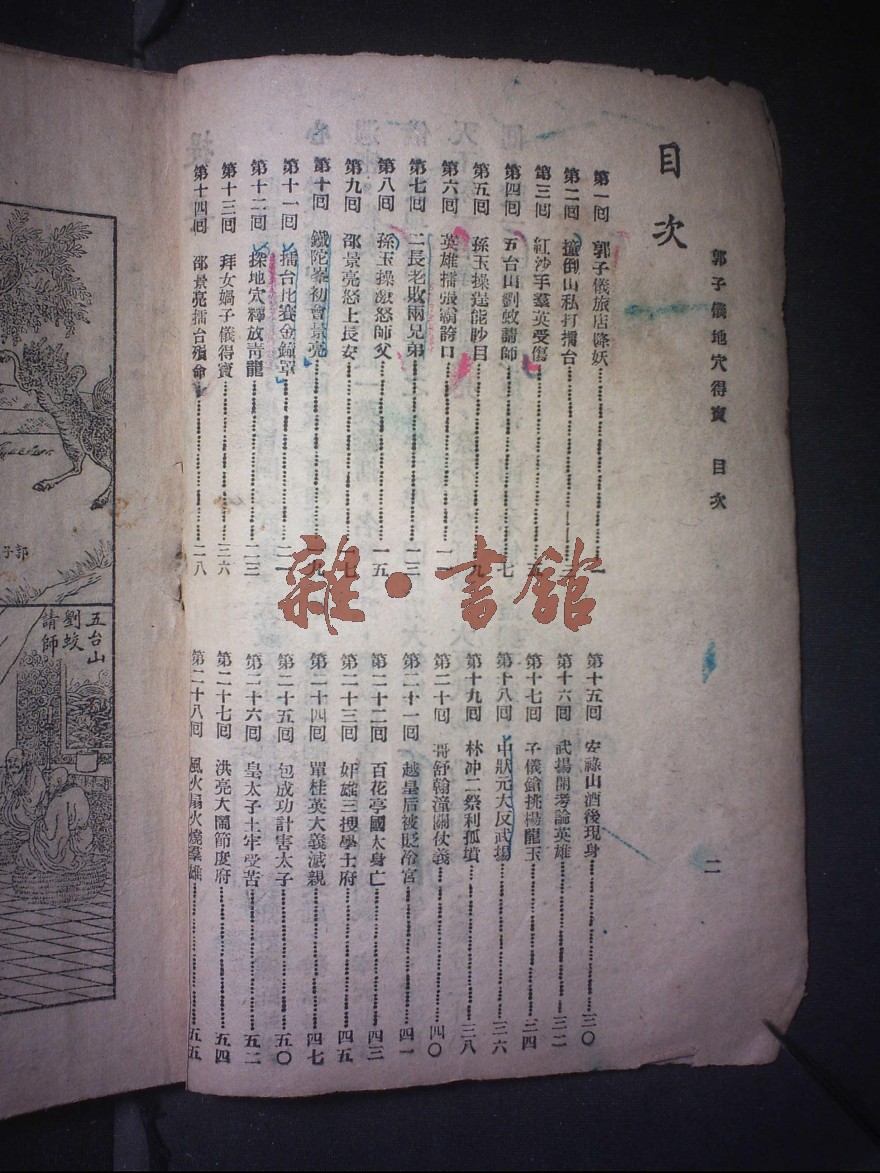 郭子儀地穴得寶 目次
二
目次
第一回 郭子儀旅店降妖……一
第二回 撞倒山私打擂台……三
第三回 紅沙手羣英受傷……五
第四回 五台山劉蛟請師……七
第五回 孫玉操逞能眇目……九
第六回 英雄擂張霸誇口……一一
第七回 二長老敗兩兄弟……一三
第八回 孫玉操激怒師父……一五
第九回 邵景亮怒上長安……一七
第十回 鐵陀峯初會景亮……一九
第十一回 擂台比賽金鐘罩……二一
第十二回 探地穴釋放青龍……二三
第十三回 拜女媧子儀得寶……三六
第十四回 邵景亮擂台殞命……二八
第十五回 安祿山酒後現身……三〇
第十六回 武場開考論英雄……三二
第十七回 子儀鎗挑楊龍玉……三四
第十八回 中狀元大反武場……三六
第十九回 林冲二祭利孤墳……三八
第二十回 哥舒翰潼關仗義……四〇
第二十一回 越皇后被貶冷宮……四一
第二十二回 百花亭國太身亡……四三
第二十三回 奸雄三搜學士府……四五
第二十四回 單桂英大義滅親……四七
第二十五回 包成功計害太子……五〇
第二十六回 皇太子土牢受苦……五二
第二十七回 洪亮大鬧節度府……五四
第二十八回 風火扇火燒羣雄……五五
雜·書館
郭子
五台山
劉蛟
請師